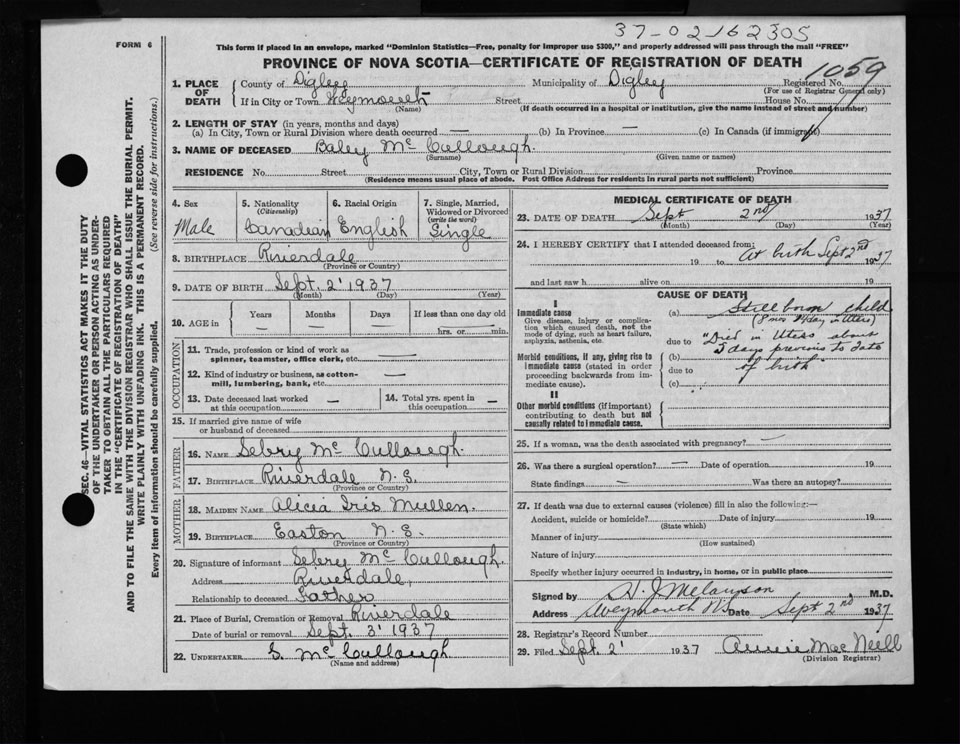 37-02162305
FORM 6
This form if placed in an envelope, marked "Dominion Statistics—Free, penalty for improper use $300," and properly addressed will pass through the mail "FREE"
PROVINCE OF NOVA SCOTIA—CERTIFICATE OF REGISTRATION OF DEATH
1. PLACE OF DEATH County of Digby Municipality of Digby Registered No. 1059
(For use of Registrar General only)
If in City or Town Weymouth Street House No.
(Name) (If death occurred in a hospital or institution, give the name instead of street and number)
2. LENGTH OF STAY (in years, months and days)
(a) In City, Town or Rural Division where death occurred — (b) In Province — (c) In Canada (if immigrant)
3. NAME OF DECEASED Baley Mc Cullough.
(Surname) (Given name or names)
RESIDENCE No. Street City, Town or Rural Division Province
(Residence means usual place of abode. Post Office Address for residents in rural parts not sufficient)
SEC. 46—VITAL STATISTICS ACT MAKES IT THE DUTY
OF THE UNDERTAKER OR PERSON ACTING AS UNDER-
TAKER TO OBTAIN ALL THE PARTICULARS REQUIRED
IN THE "CERTIFICATE OF REGISTRATION OF DEATH"
AND TO FILE THE SAME WITH THE DIVISION REGISTRAR WHO SHALL ISSUE THE BURIAL PERMIT.
WRITE PLAINLY WITH UNFADING INK. THIS IS A PERMANENT RECORD.
Every item of information should be carefully supplied. (See reverse side for instructions.)
4. Sex
Male
5. Nationality
(Citizenship)
Canadian
6. Racial Origin
English
7. Single, Married,
Widowed or Divorced
(write the word)
Single
8. BIRTHPLACE Riverdale
(Province or Country)
9. DATE OF BIRTH Sept. 2' 1937
(Month) (Day) (Year)
10. AGE in Years Months Days If less than one day old
— — — hrs. or min.
OCCUPATION
11. Trade, profession or kind of work as
spinner, teamster, office clerk, etc. —
12. Kind of industry or business, as cotton-
mill, lumbering, bank, etc. —
13. Date deceased last worked
at this occupation —
14. Total yrs. spent in
this occupation —
15. If married give name of wife
or husband of deceased
FATHER
16. NAME Sebry Mc Cullough.
17. BIRTHPLACE Riverdale N.S.
(Province or Country)
MOTHER
18. MAIDEN NAME Alicia Iris Mullen.
19. BIRTHPLACE Easton N.S.
(Province or Country)
20. Signature of informant Sebry Mc Cullough.
Address Riverdale,
Relationship to deceased Father
21. Place of Burial, Cremation or Removal Riverdale
Date of burial or removal Sept. 3' 1937
22. UNDERTAKER S. Mc Cullough
(Name and address)
MEDICAL CERTIFICATE OF DEATH
23. DATE OF DEATH Sept 2nd 1937
(Month) (Day) (Year)
24. I HEREBY CERTIFY that I attended deceased from:
19 to At birth Sept 2nd 1937
and last saw h alive on 19
CAUSE OF DEATH
I
Immediate cause
Give disease, injury or complica-
tion which caused death, not the
mode of dying, such as heart failure,
asphyxia, asthenia, etc.
Morbid conditions, if any, giving rise to
immediate cause (stated in order
proceeding backwards from im-
mediate cause).
II
Other morbid conditions (if important)
contributing to death but not
causally related to immediate cause.
(a) Stillborn child
due to "Died in Utero about
(b) 5 days previous to date
due to of birth"
(c)
25. If a woman, was the death associated with pregnancy? —
26. Was there a surgical operation? — Date of operation 19
State findings — Was there an autopsy?
27. If death was due to external causes (violence) fill in also the following:—
Accident, suicide or homicide? Date of injury 19
(State which)
Manner of injury
(How sustained)
Nature of injury
Specify whether injury occurred in industry, in home, or in public place
Signed by H. J. Melanson M.D.
Address Weymouth NS Date Sept 2nd 1937
28. Registrar's Record Number
29. Filed Sept 2' 1937 Annie Mac Neill
(Division Registrar)